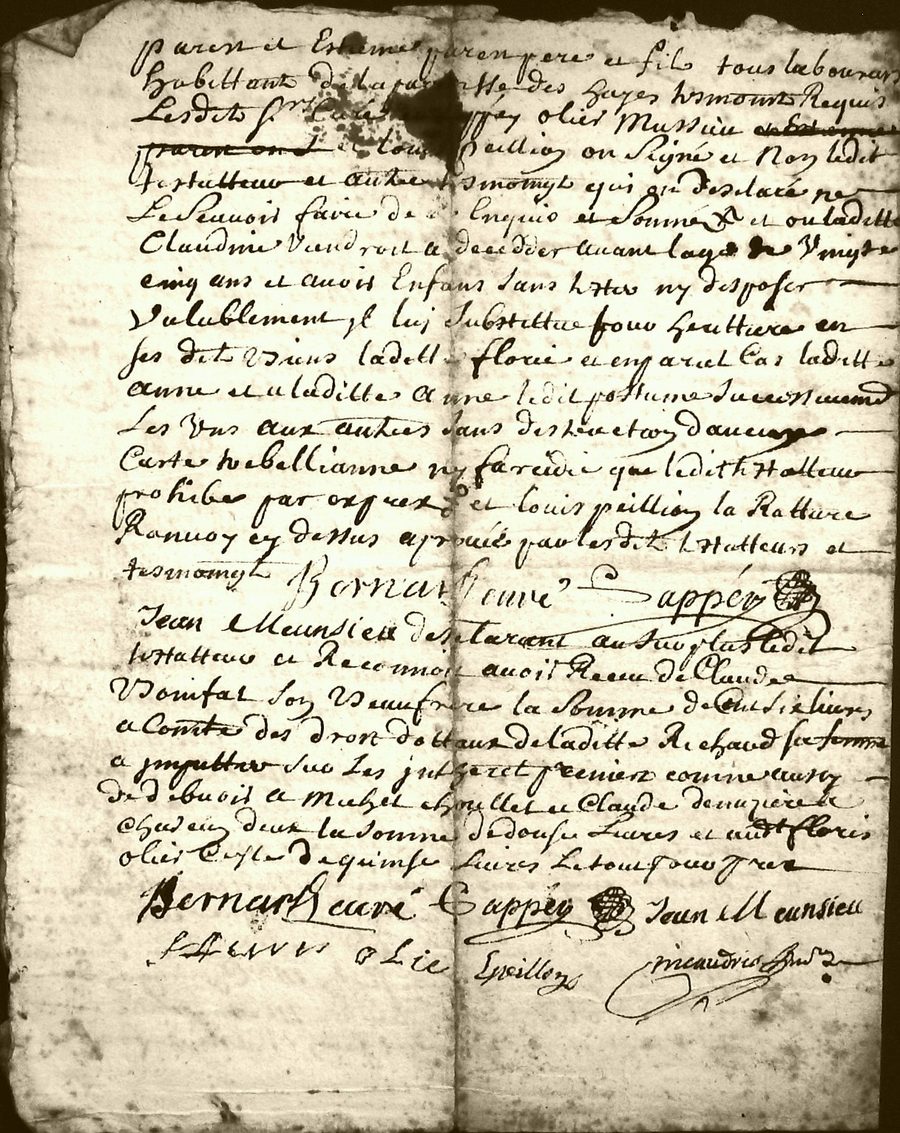 parent et Estienne paren pere et fils tous laboureurs
habittant de la paroisse des hayes tesmoint Requis
Lesdits sr Curé Sappey olier Mussieu et Estienne
paren ons et louis peillion on signé et Non ledit
testatteur et autres tesmoingt qui on desclaré ne
Le scavoir faire de ce Enquis et Sommé et ou laditte
Claudine viendroit a decedder avant lage de vingt
cinq ans et avoir Enfans sans tester ny disposer
valablement jl luj substittue pour herittiere en
ses dit biens laditte florie et en pareil Cas laditte
anne et a laditte anne ledit postume successivement
Les uns aux autres sans destraction daucune
Carte trebellianne ny falcidie que ledit testatteur
prohibe par exprex et louis peillion la Ratture
Ranvoy cy dessus aprouvé par lesdits testatteurs et
tesmoingt Bernard Curé Sappéy
Jean Meunsieu desclarant au surplus ledit
testatteur et Reconnoit avoir Receu de Claude
Bonifat son beaufrere la somme de Cent six livres
a Comte des droit dottaux de laditte Richaud sa femme
a jmputter sur Les jntheret premier comme aussy
de debvoir a Michel choullet et Claude demaziere a
chascun deux la somme de douse Livres et audt floris
olier Celle de quinse Livres Le tout pour pret
Bernard Curé Sappéy Jean Meunsieu
f olie L peillon